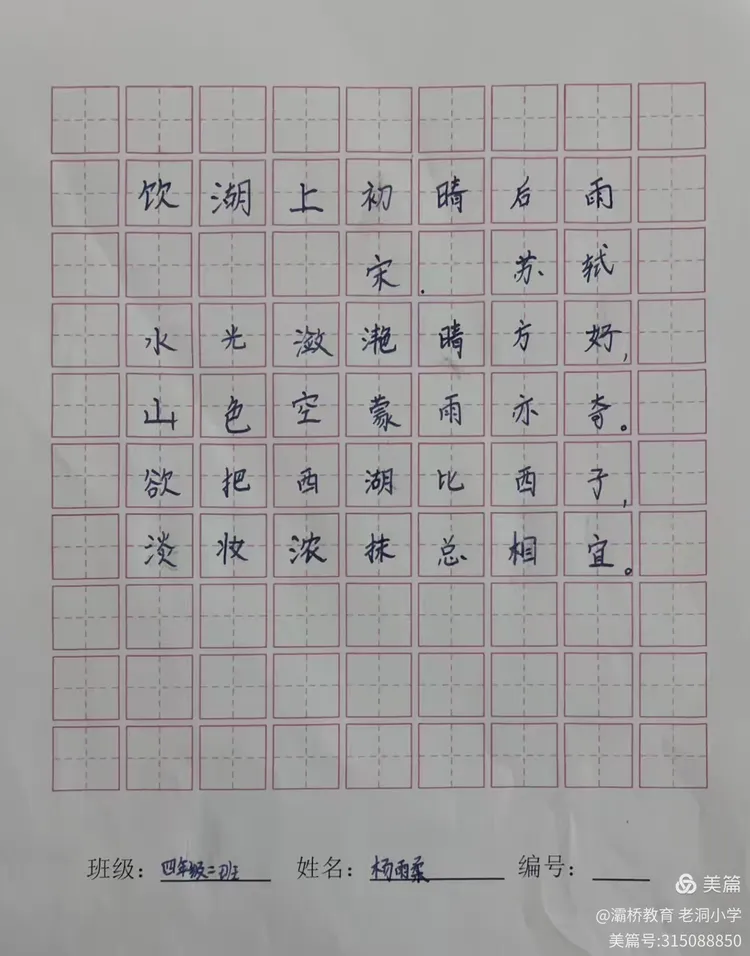 饮湖上初晴后雨
宋.苏轼
水光潋滟晴方好,
山色空蒙雨亦奇。
欲把西湖比西子,
淡妆浓抹总相宜。
班级：四年级二班 姓名：杨雨柔 编号：
美篇
@灞桥教育 老洞小学
美篇号:315088850